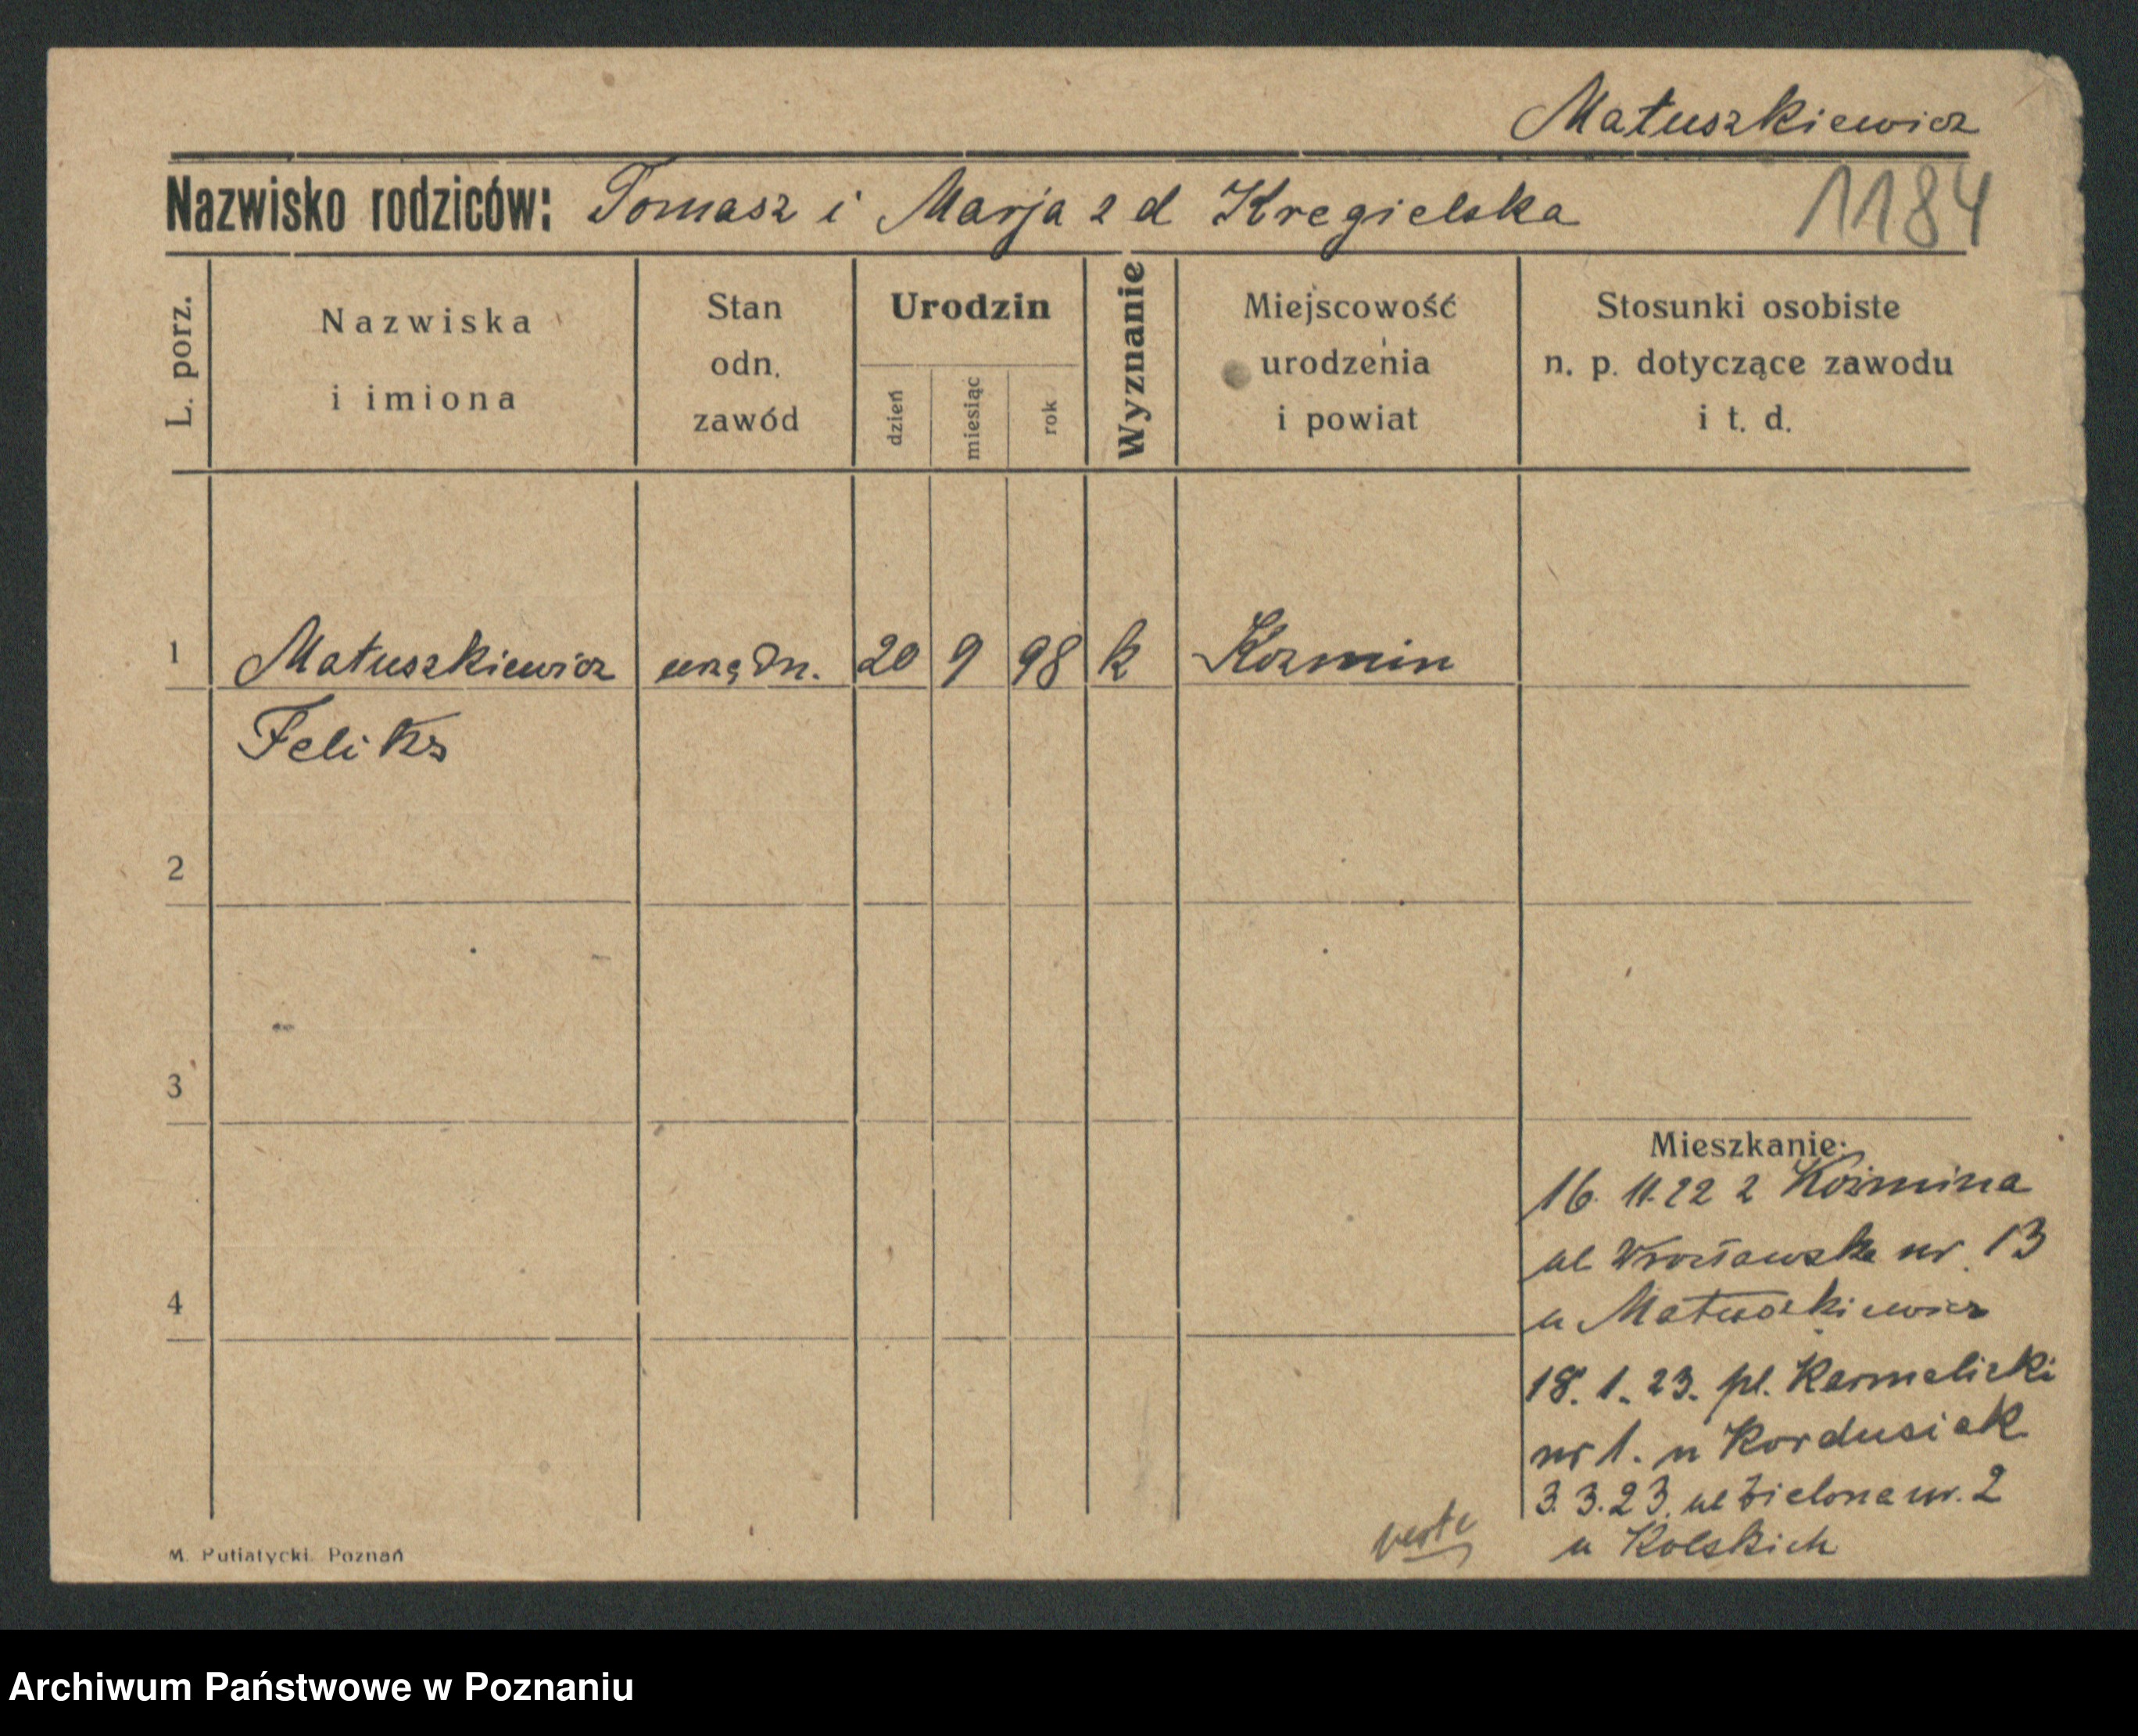 Matuszkiewicz
Nazwisko rodziców: Tomasz i Marja z d Kregielska 1184
L. porz.
Nazwiska
i imiona
Stan
odn.
zawód
Urodzin
dzień
miesiąc
rok
Wyznanie
Miejscowość
urodzenia
i powiat
Stosunki osobiste
n. p. dotyczące zawodu
i t. d.
1 Matuszkiewicz urzędn. 20 9 98 k Kozmin
Feliks
2
3
Mieszkanie:
16. 11. 22 z Kozmina
ul Wrocławska nr. 13
4
u Matuszkiewicz
18. 1. 23. pl. Karmelicki
nr 1. u Kordusiak
3. 3. 23. ul Zielona nr. 2
u Kolskich
verte
M. Putiatycki. Poznań
Archiwum Państwowe w Poznaniu